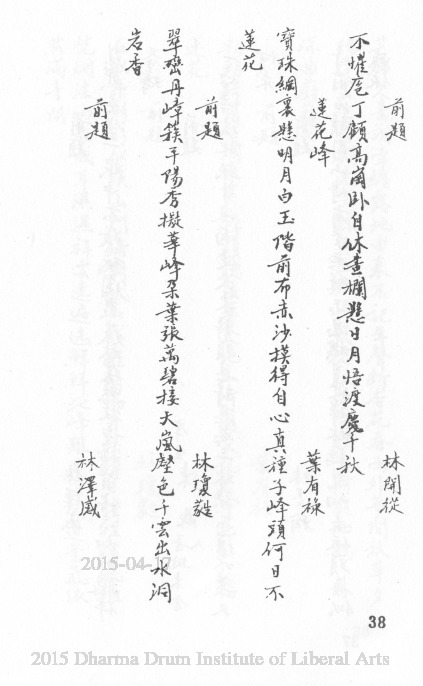 前題 林開從
不懼庖丁顧高崗臥自休畫欄懸日月悟渡幾千秋
蓮花峰 葉有祿
寶珠綱裏懸明月白玉階前布赤沙摸得自心真種子峰頭何日不
蓮花
前題 林瓊蕤
翠巒丹嶂簇平陽秀擬華峰朵葉張萬碧接大嵐壁色千雲出水洞
岩香
前題 林澤威
38
2015-04-17
2015 Dharma Drum Institute of Liberal Arts